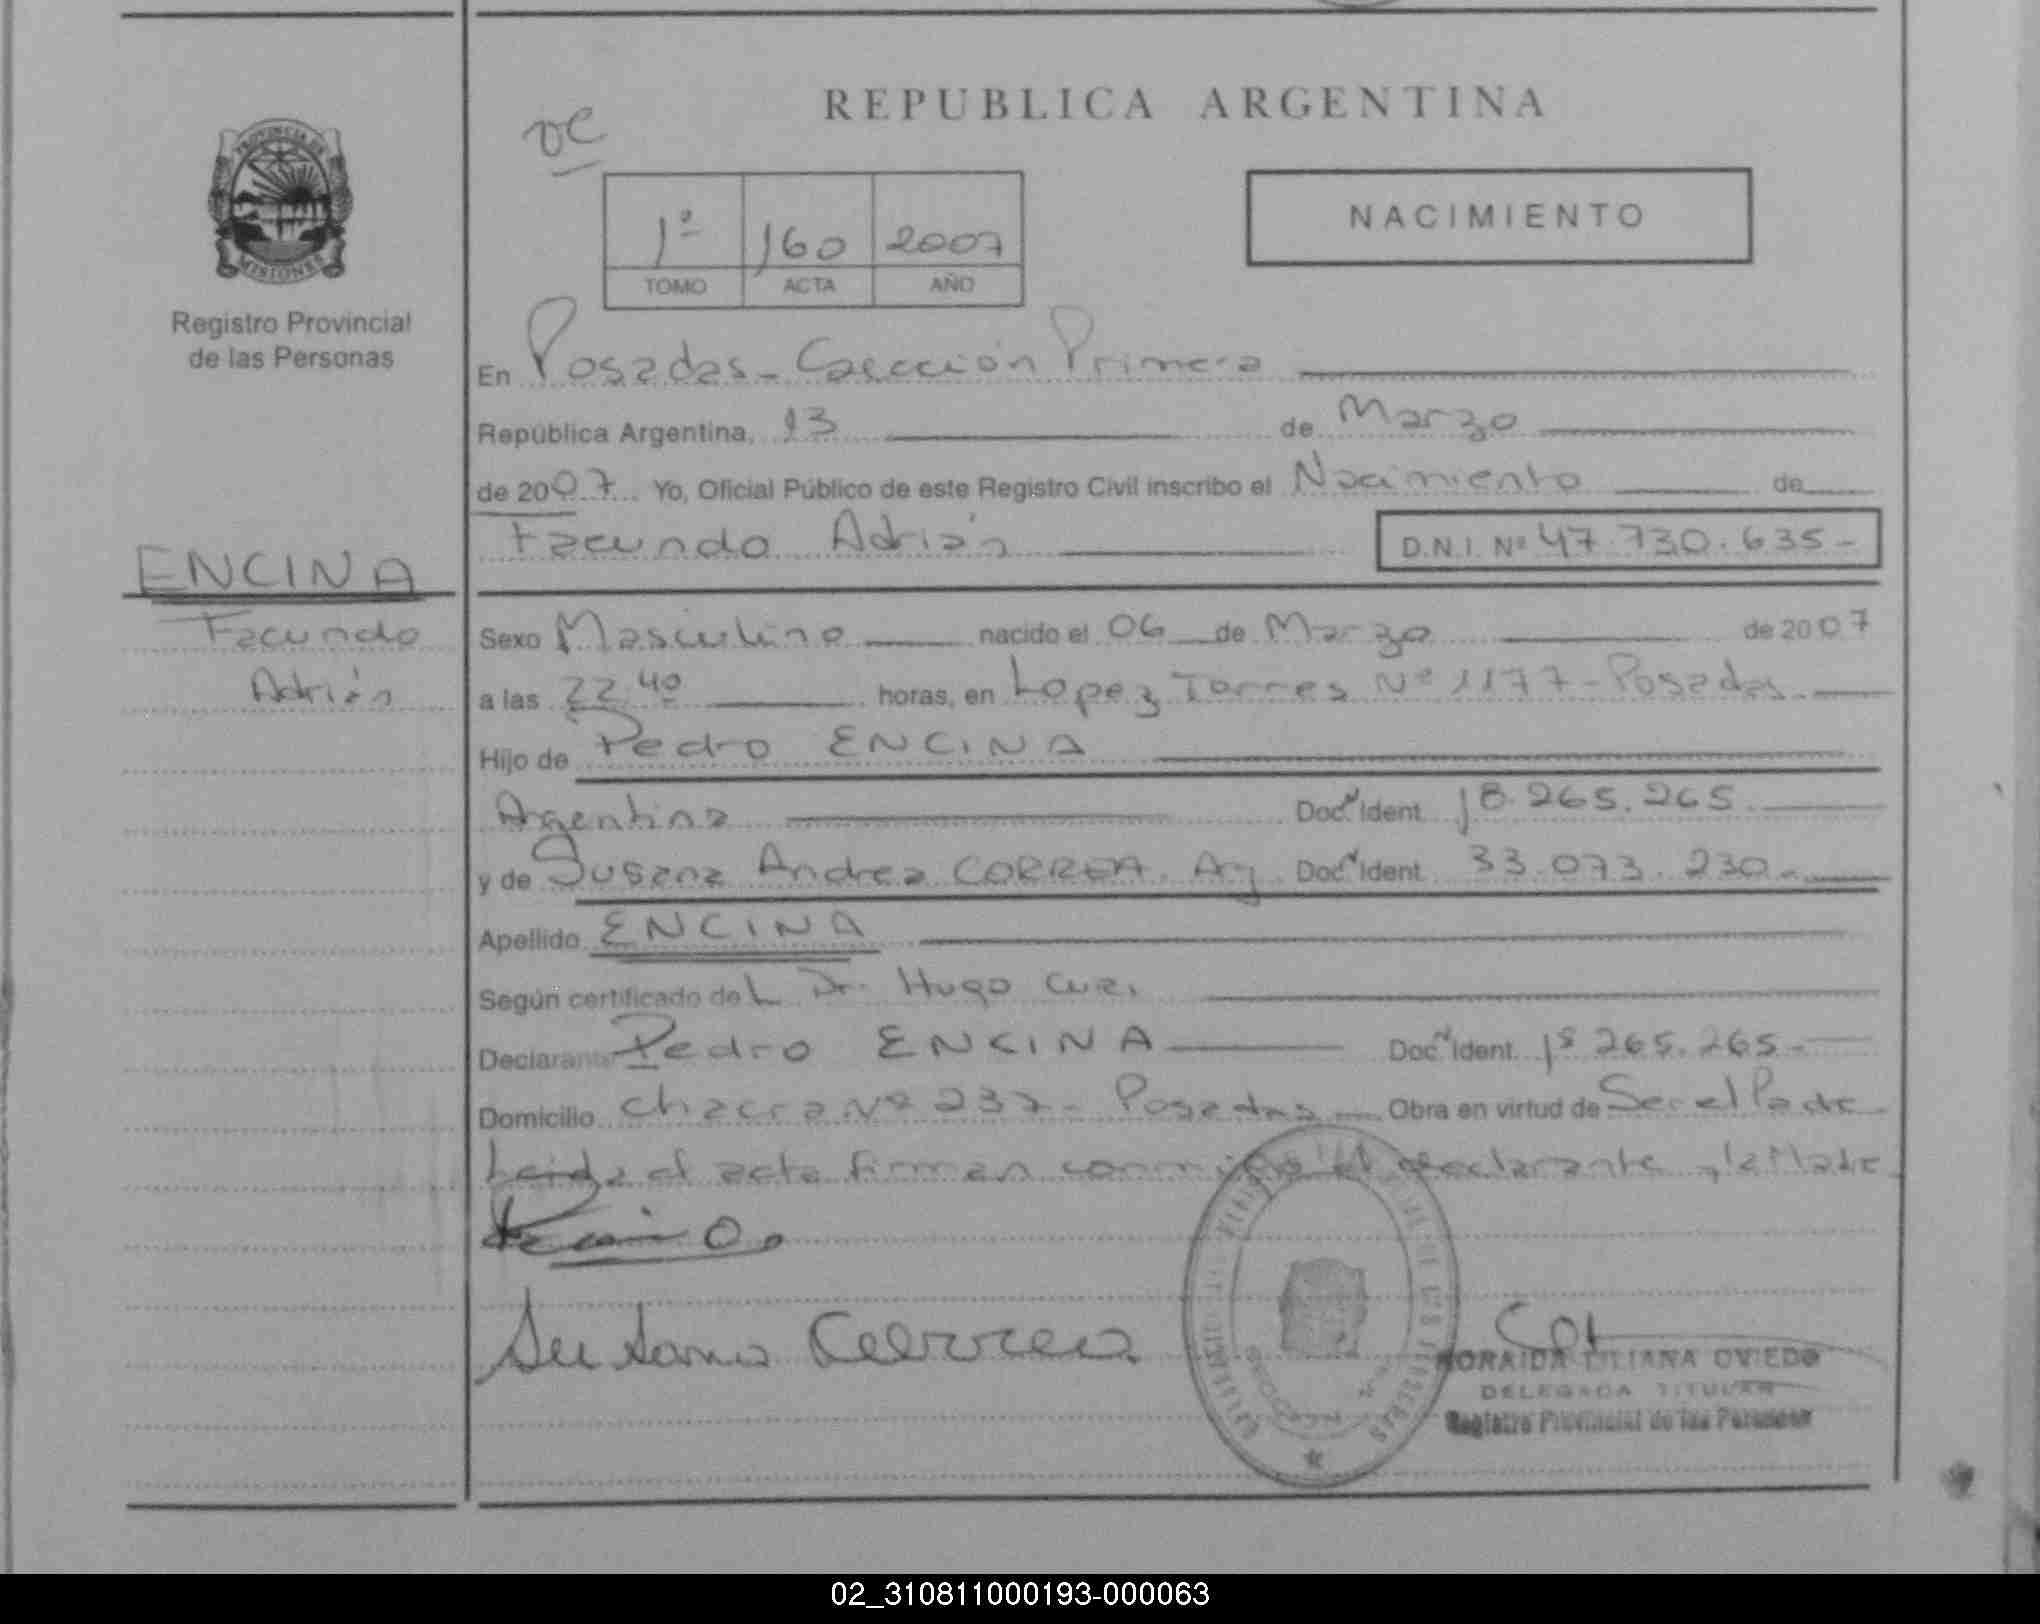 REPUBLICA ARGENTINA
PROVINCIA DE
MISIONES
Registro Provincial
de las Personas
1º 160 2007
TOMO ACTA AÑO
NACIMIENTO
En Posadas - Sección Primera
República Argentina, 13 de Marzo
de 2007 Yo, Oficial Público de este Registro Civil inscribo el Nacimiento de
Facundo Adrián D.N.I. Nº 47.730.635-
ENCINA
Facundo
Adrián
Sexo Masculino nacido el 06 de Marzo de 2007
a las 22,40 horas, en Lopez Torres Nº 1177 - Posadas
Hijo de Pedro ENCINA
Argentina Doc. Ident. 18.265.265
y de Susana Andrea CORREA. Arg Doc. Ident. 33.073.230.-
Apellido ENCINA
Según certificado del Dr. Hugo
Declarante Pedro ENCINA Doc. Ident. 18.265.265-
Domicilio Chacra Nº 237 - Posadas Obra en virtud de Ser el Padre
Leida el acta firman conmigo el declarante y la Madre
Susana Correa
ZORAIDA LILIANA OVIEDO
DELEGADA TITULAR
Registro Provincial de las Personas
02_310811000193-000063